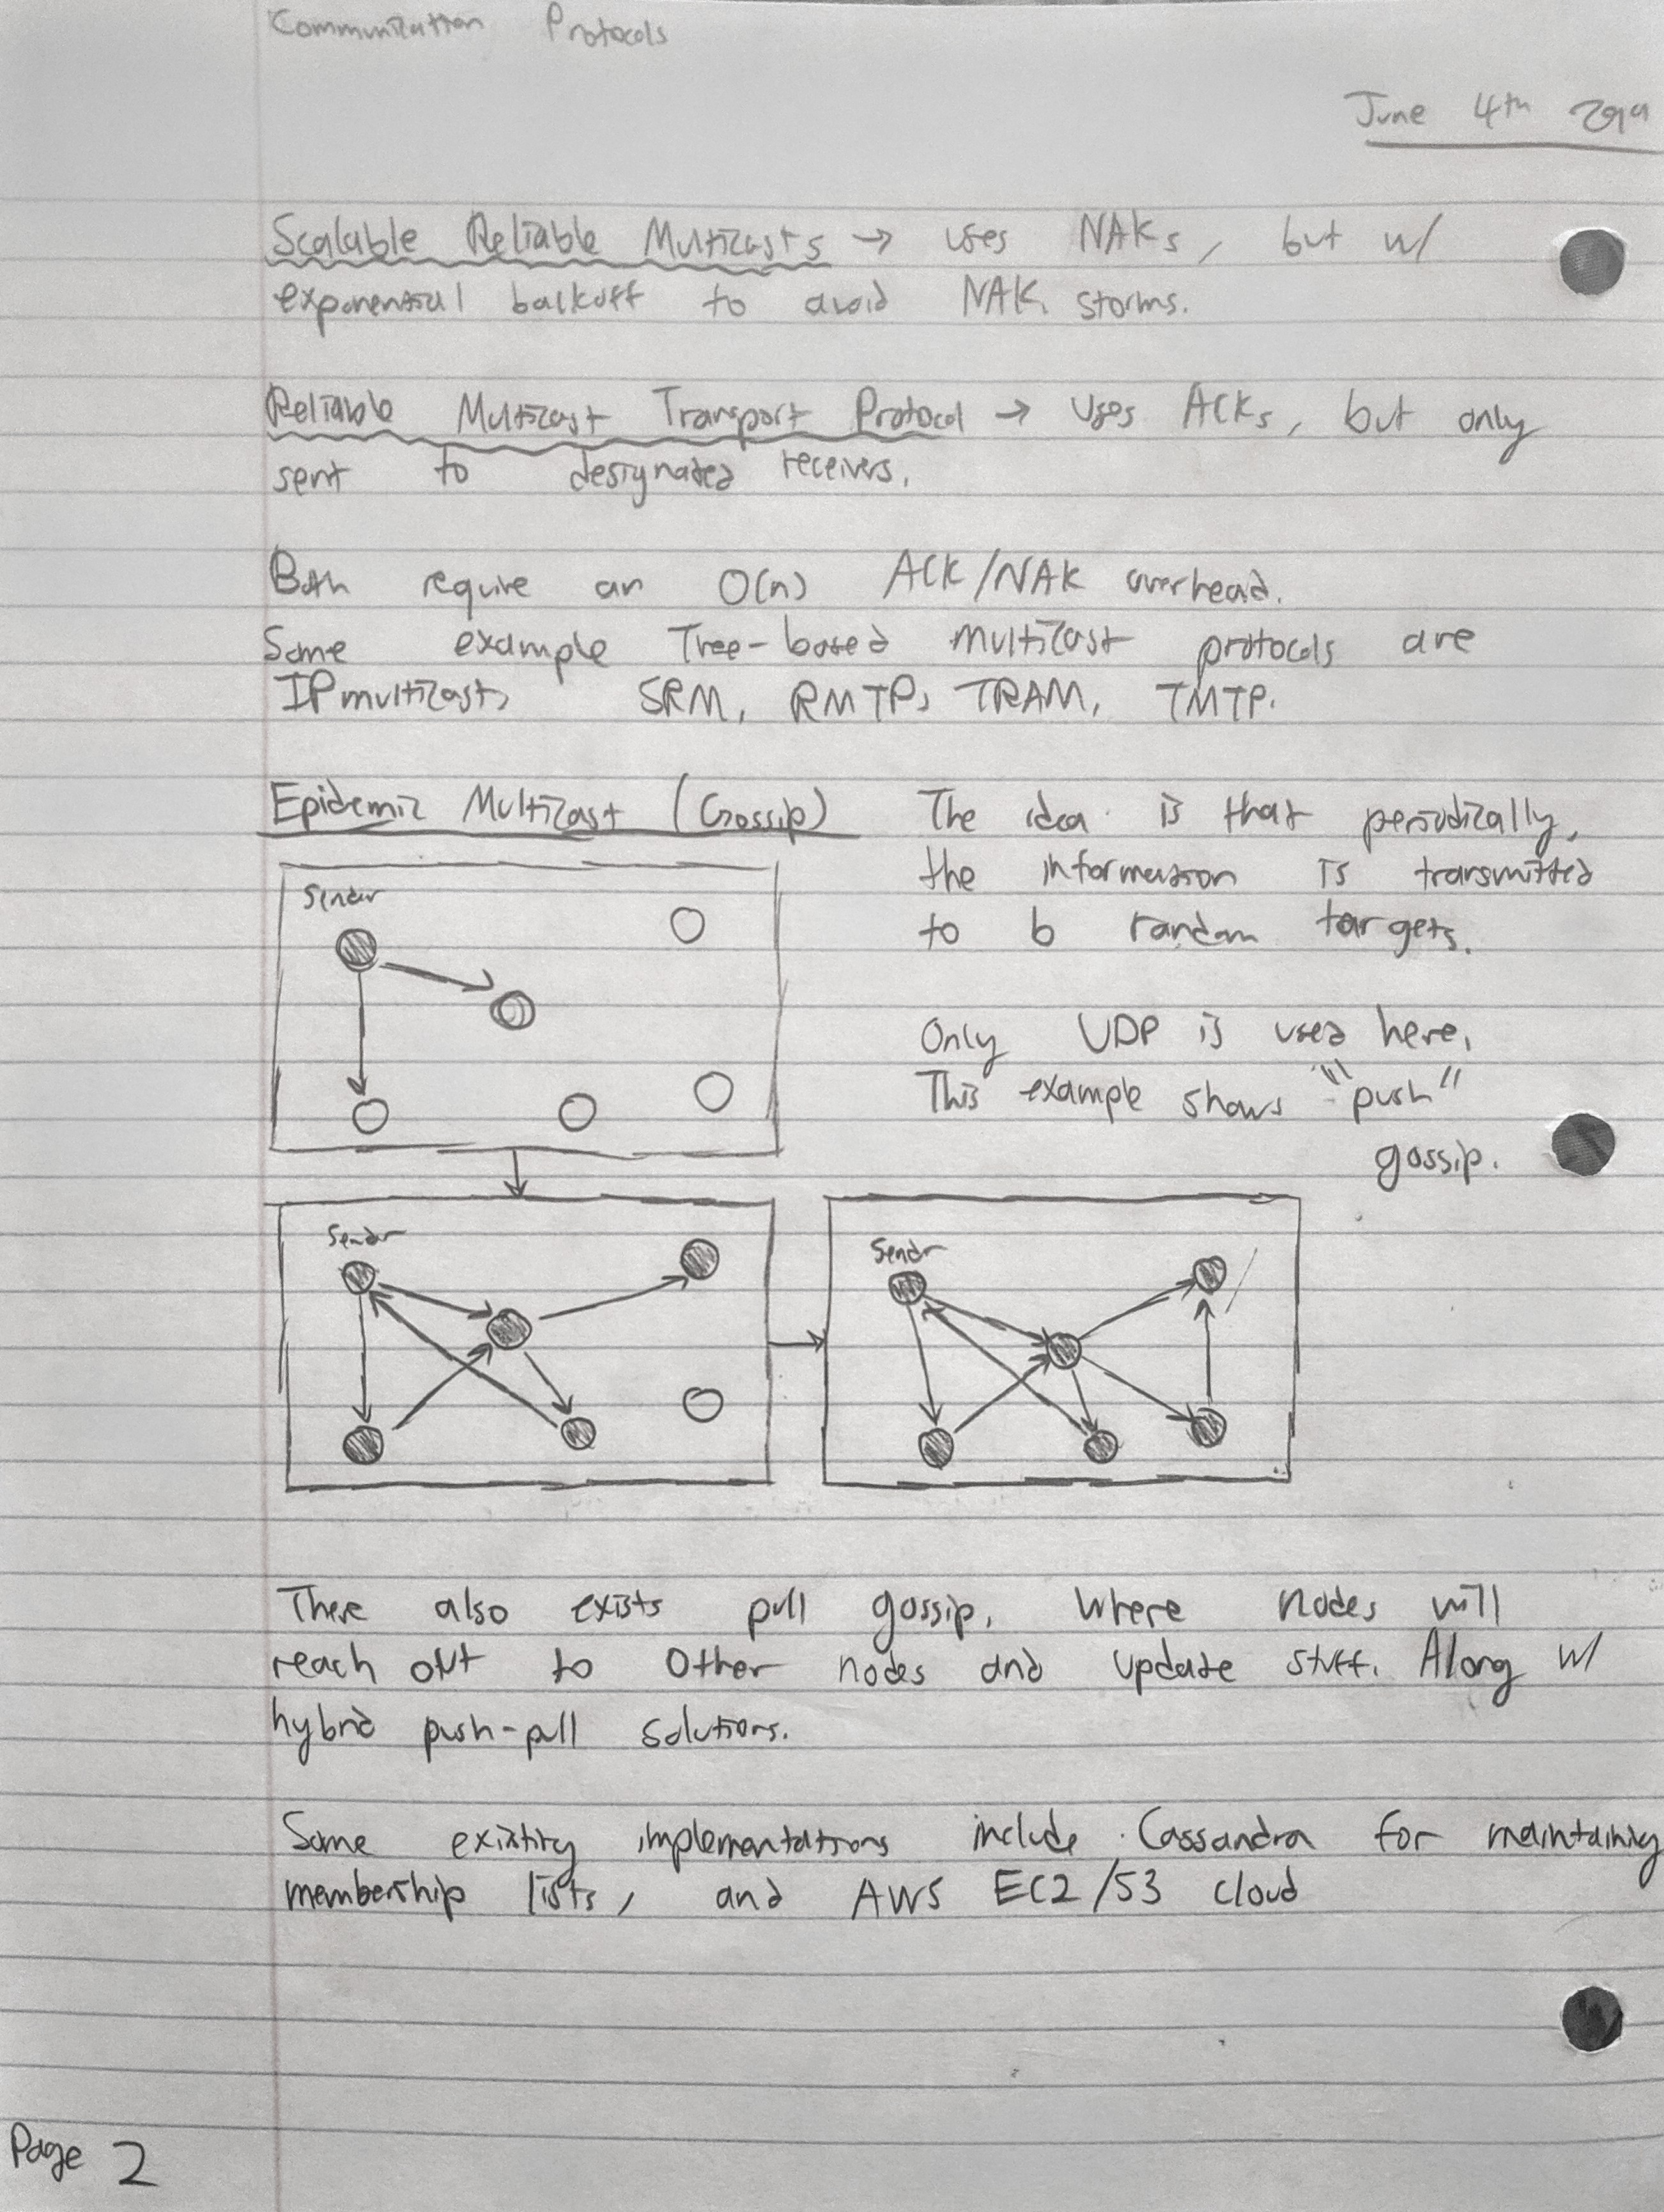 Communication Protocols
June 4th
Scalable Reliable Multicasts → uses NAKs, but w/
exponential backoff to avoid NAK storms.
Reliable Multicast Transport Protocol → uses ACKs, but only
sent to designated receivers.
Both require an O(n) ACK/NAK overhead.
Some example Tree-based multicast protocols are
IPmulticast, SRM, RMTP, TRAM, TMTP.
Epidemic Multicast (Gossip)
The idea is that periodically,
the information is transmitted
to b random targets.
Sender
Only UDP is used here.
This example shows "push"
gossip.
Sender
Sender
There also exists pull gossip, where nodes will
reach out to other nodes and update stuff. Along w/
hybrid push-pull solutions.
Some existing implementations include Cassandra for maintaining
membership lists, and AWS EC2/S3 cloud
Page 2